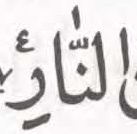 النَّارِ